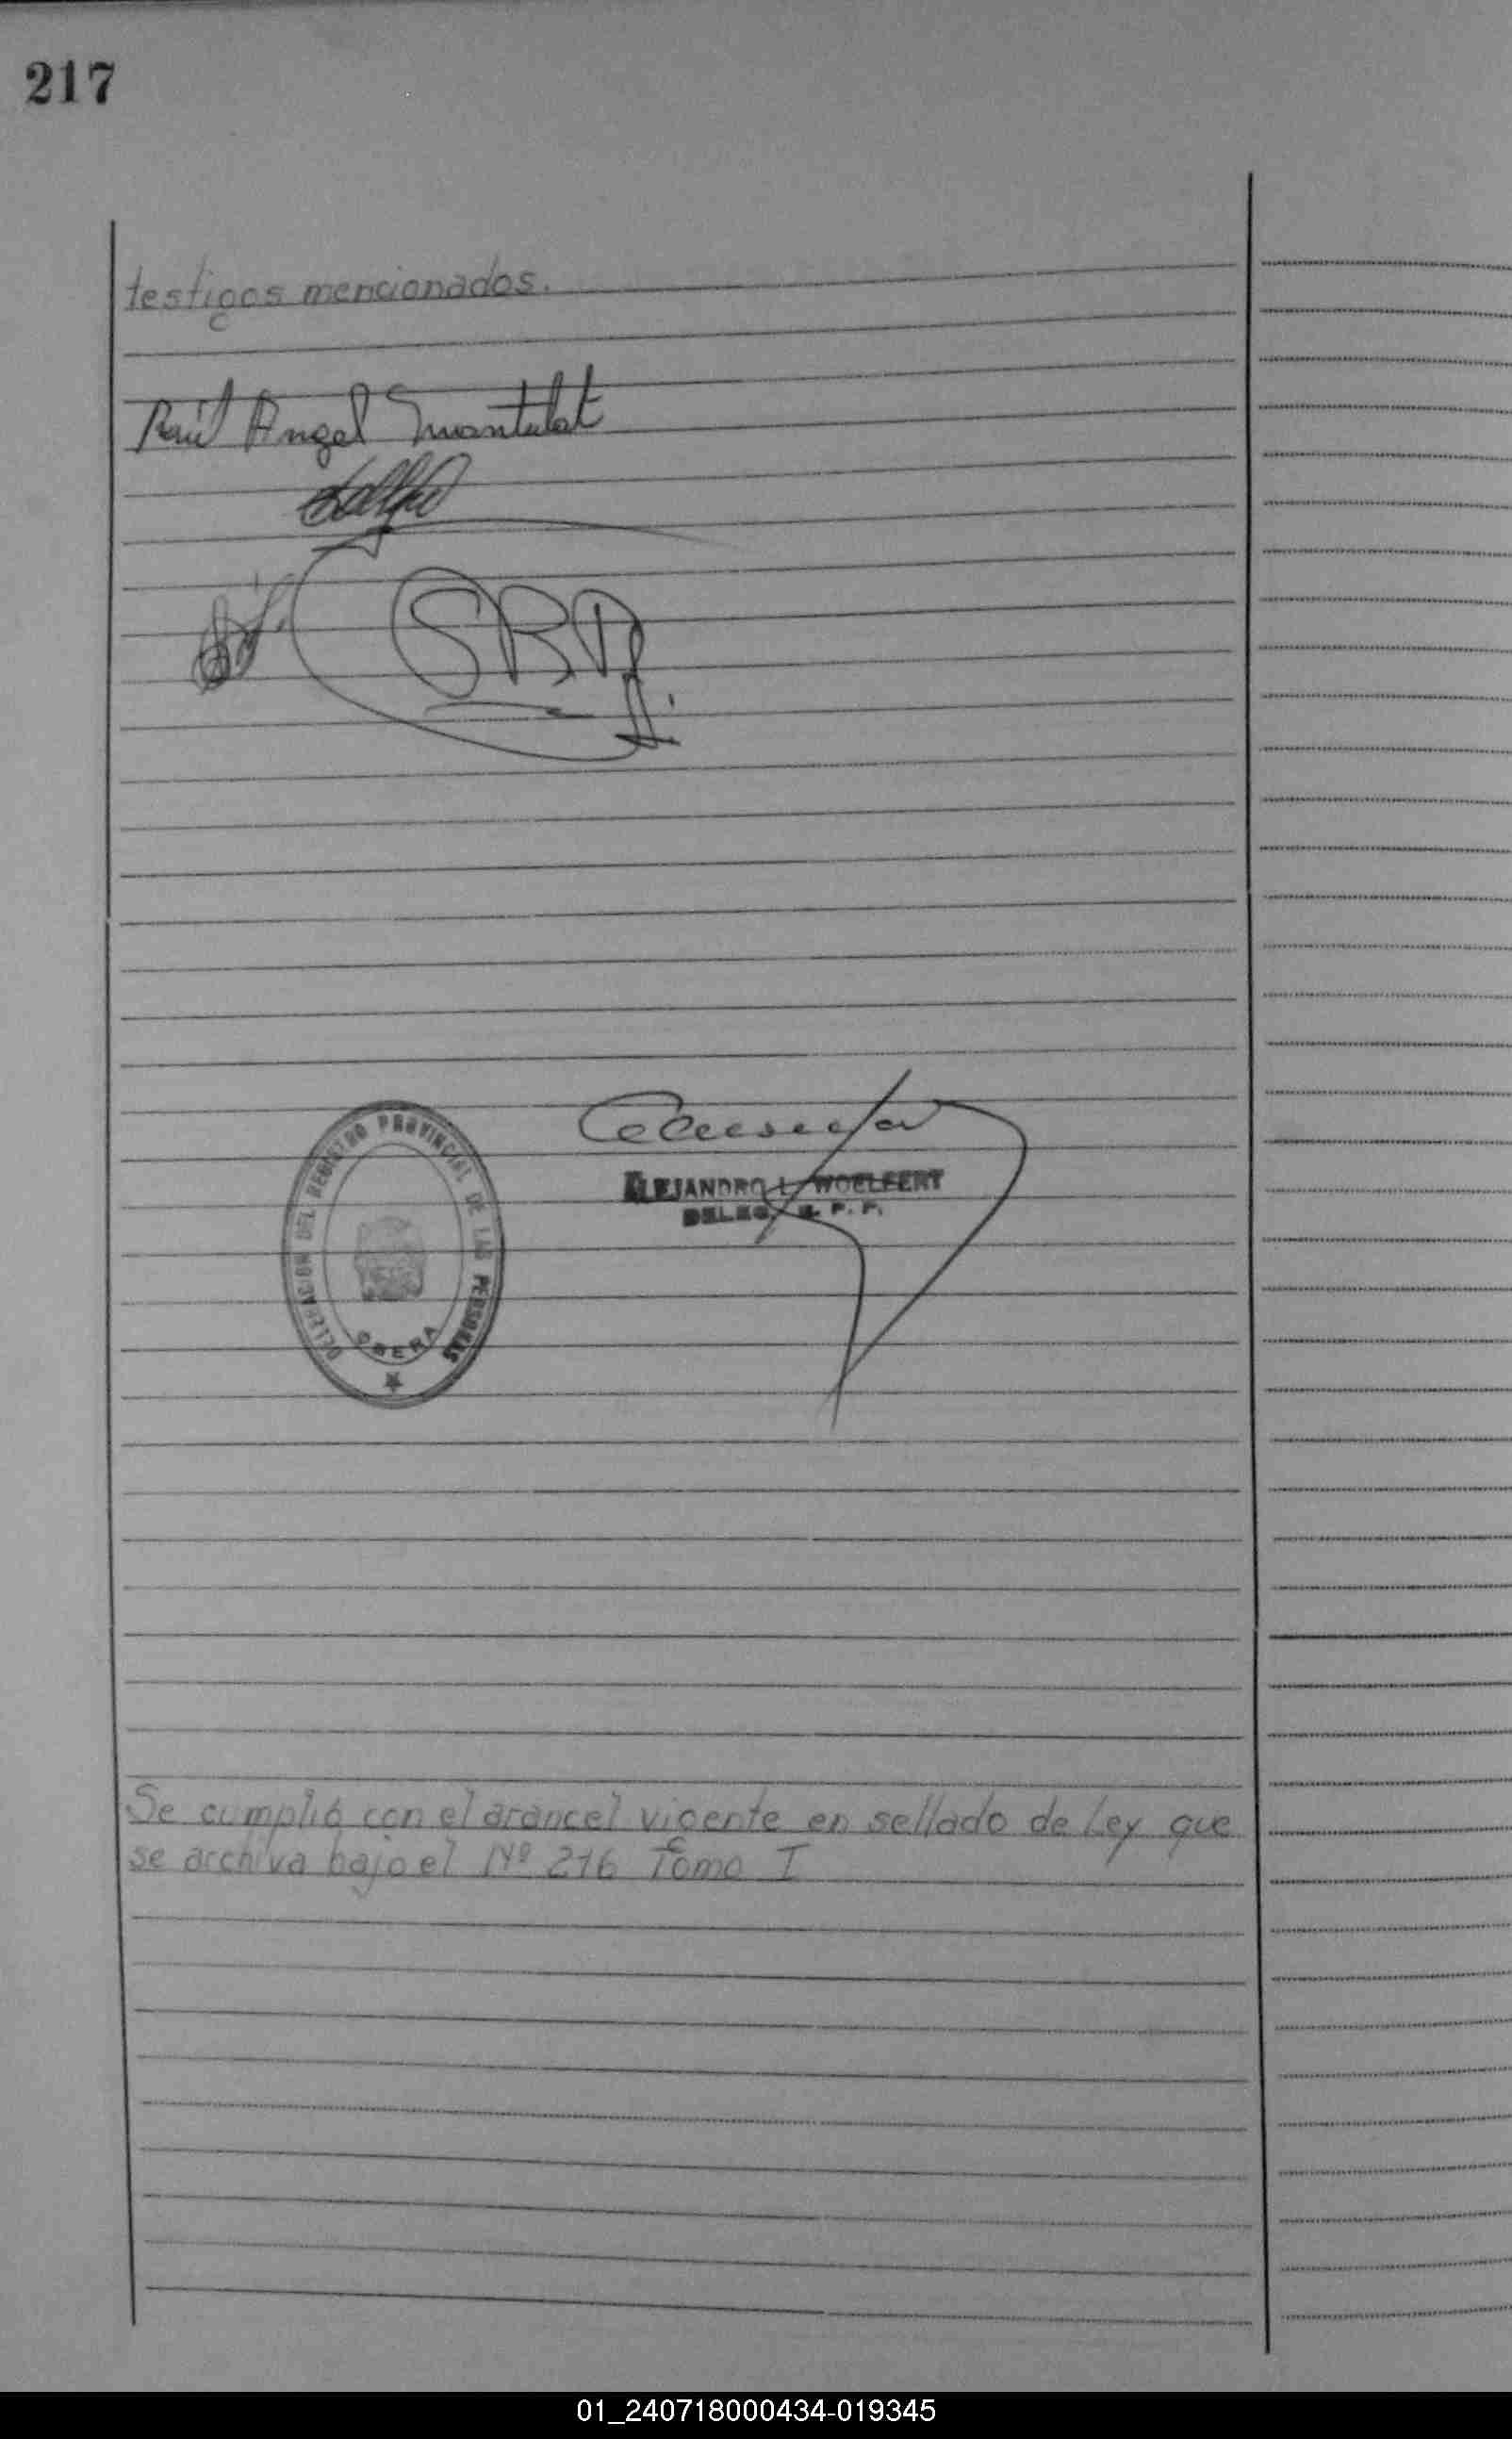 217
testigos mencionados.
Raúl Angel
DELEGACION DEL REGISTRO PROVINCIAL DE LAS PERSONAS
OBERA
ALEJANDRO L. WOELFERT
DELEG. R. P. P.
Se cumplió con el arancel vigente en sellado de Ley que
se archiva bajo el Nº 216 Tomo I
01_240718000434-019345